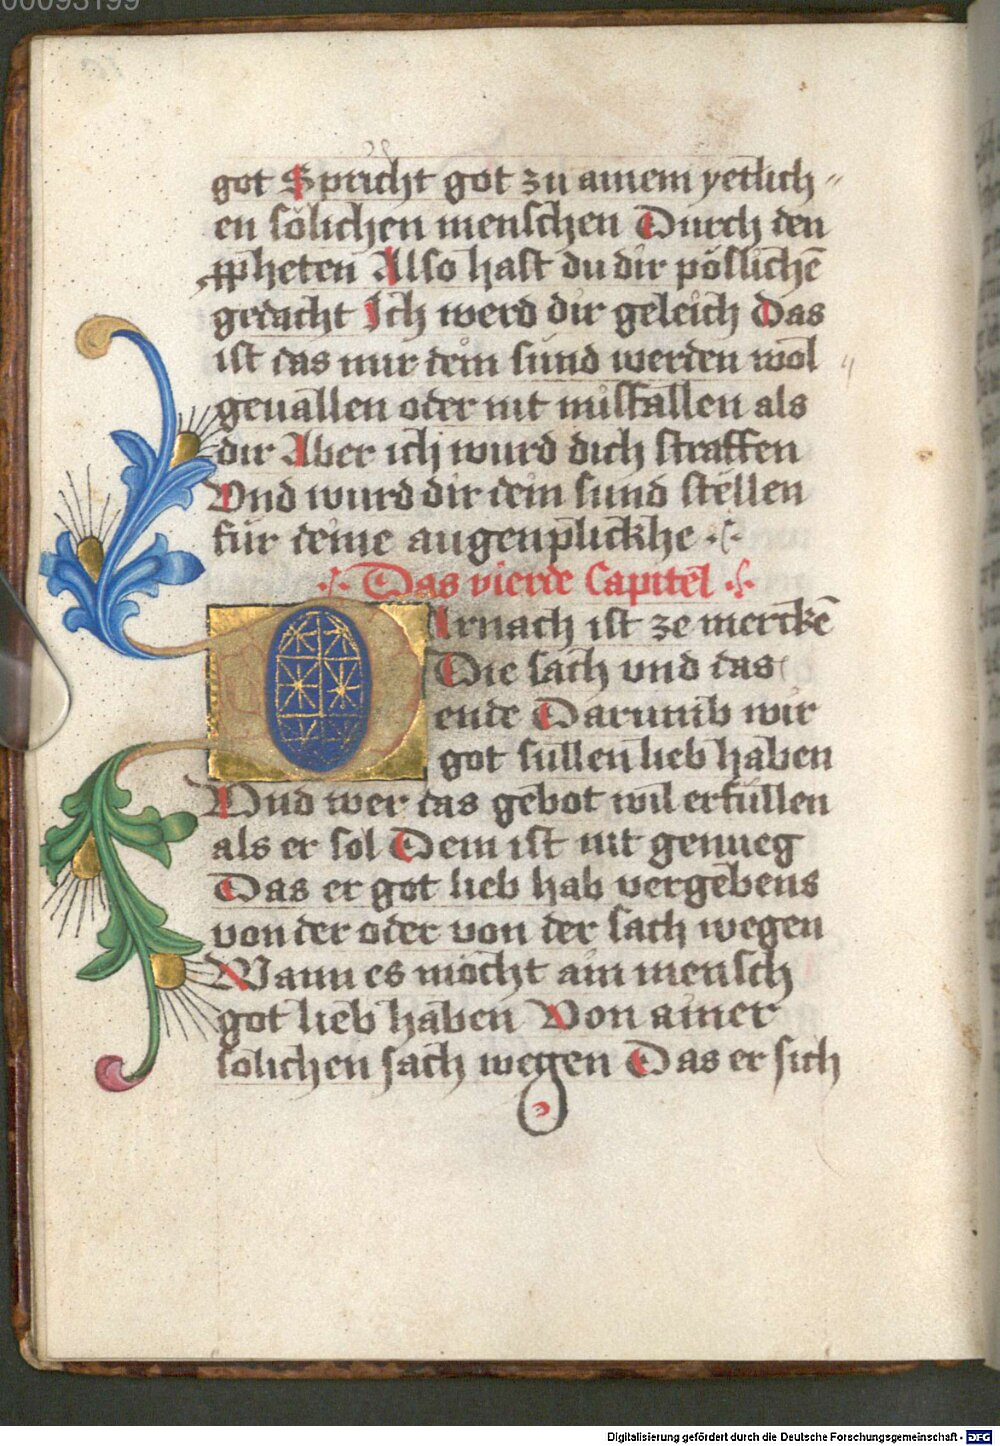 00093199
got Spricht got zu ainem yetlich〃
en sölichen menschen Durch den
ꝓpheten Also hast du dir pöslichē
gedacht Ich werd dir geleich Das
ist das mir dein sünd werden wol
geuallen oder nit misfallen als
dir Aber ich wurd dich straffen
Vnd wurd dir dein sund stellen
für deine augenplickhe
Das vierde Capitel
DArnach ist ze merckē
Die sach vnd das
ende Darumb wir
got süllen lieb haben
Vnd wer das gebot wil erfüllen
als er sol Dem ist nit genueg
Das er got lieb hab vergebens
von der oder von der sach wegen
Wann es möcht ain mensch
got lieb haben Von ainer
solichen sach wegen Das er sich
Digitalisierung gefördert durch die Deutsche Forschungsgemeinschaft - DFG